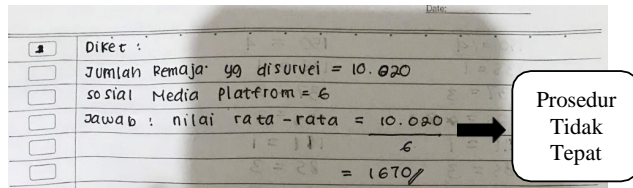 Date:
1 Diket :
Jumlah Remaja yg disurvei = 10.020
sosial Media Platfrom = 6
Jawab : nilai rata-rata = 10.020
6
= 1670//
Prosedur
Tidak
Tepat